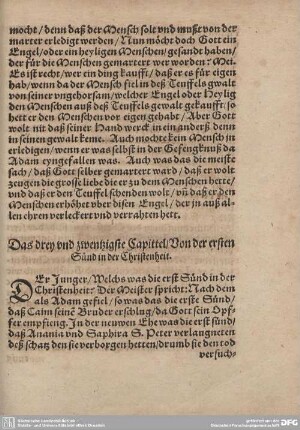 mocht/ denn daß der Mensch solt vnd mußt von der
marter erledigt werden/ Nun möcht doch Gott ein
Engel/ oder ein heyligen Menschen/ gesandt haben/
der für die Menschen gemartert wer worden? Mei.
Es ist recht/ wer ein ding kaufft/ daß er es für eigen
hab/ wenn da der Mensch fiel in deß Teuffels gwalt
von seiner vngehorsam/ welcher Engel oder Heylig
den Menschen auß deß Teuffels gewalt gekaufft/ so
hett er den Menschen vor eigen gehabt/ Aber Gott
wolt nit daß seiner Hand werck in ein anderß denn
in seinen gewalt keme. Auch mochte kein Mensch jn
erledigen/ wenn er was selbst in der Gefengknuß da
Adam eyngefallen was. Auch was das die meiste
sach/ daß Gott selber gemartert ward/ daß er wolt
zeugen die grosse liebe die er zu dem Menschen hette/
vnd daß er den Teuffel schenden wolt/ vñ daß er den
Menschen erhöhet vber disen Engel/ der jn auß al-
len ehren verleckert vnd verrahten hett.
Das drey vnd zwentzigste Capittel/ Von der ersten
Sünd in der Christenheit.
DEr Junger/ Welchs was die erst Sünd in der
Christenheit? Der Meister spricht: Nach dem
als Adam gefiel/ so was das die erste Sünd/
daß Caim seinē Bruder erschlug/ da Gott sein Opf-
fer empfieng. In der neuwen Ehe was die erst sünd/
daß Anania vnd Saphira S. Peter verlangneten
deß schatz den sie verborgen hetten/ drumb sie den tod
versuch-